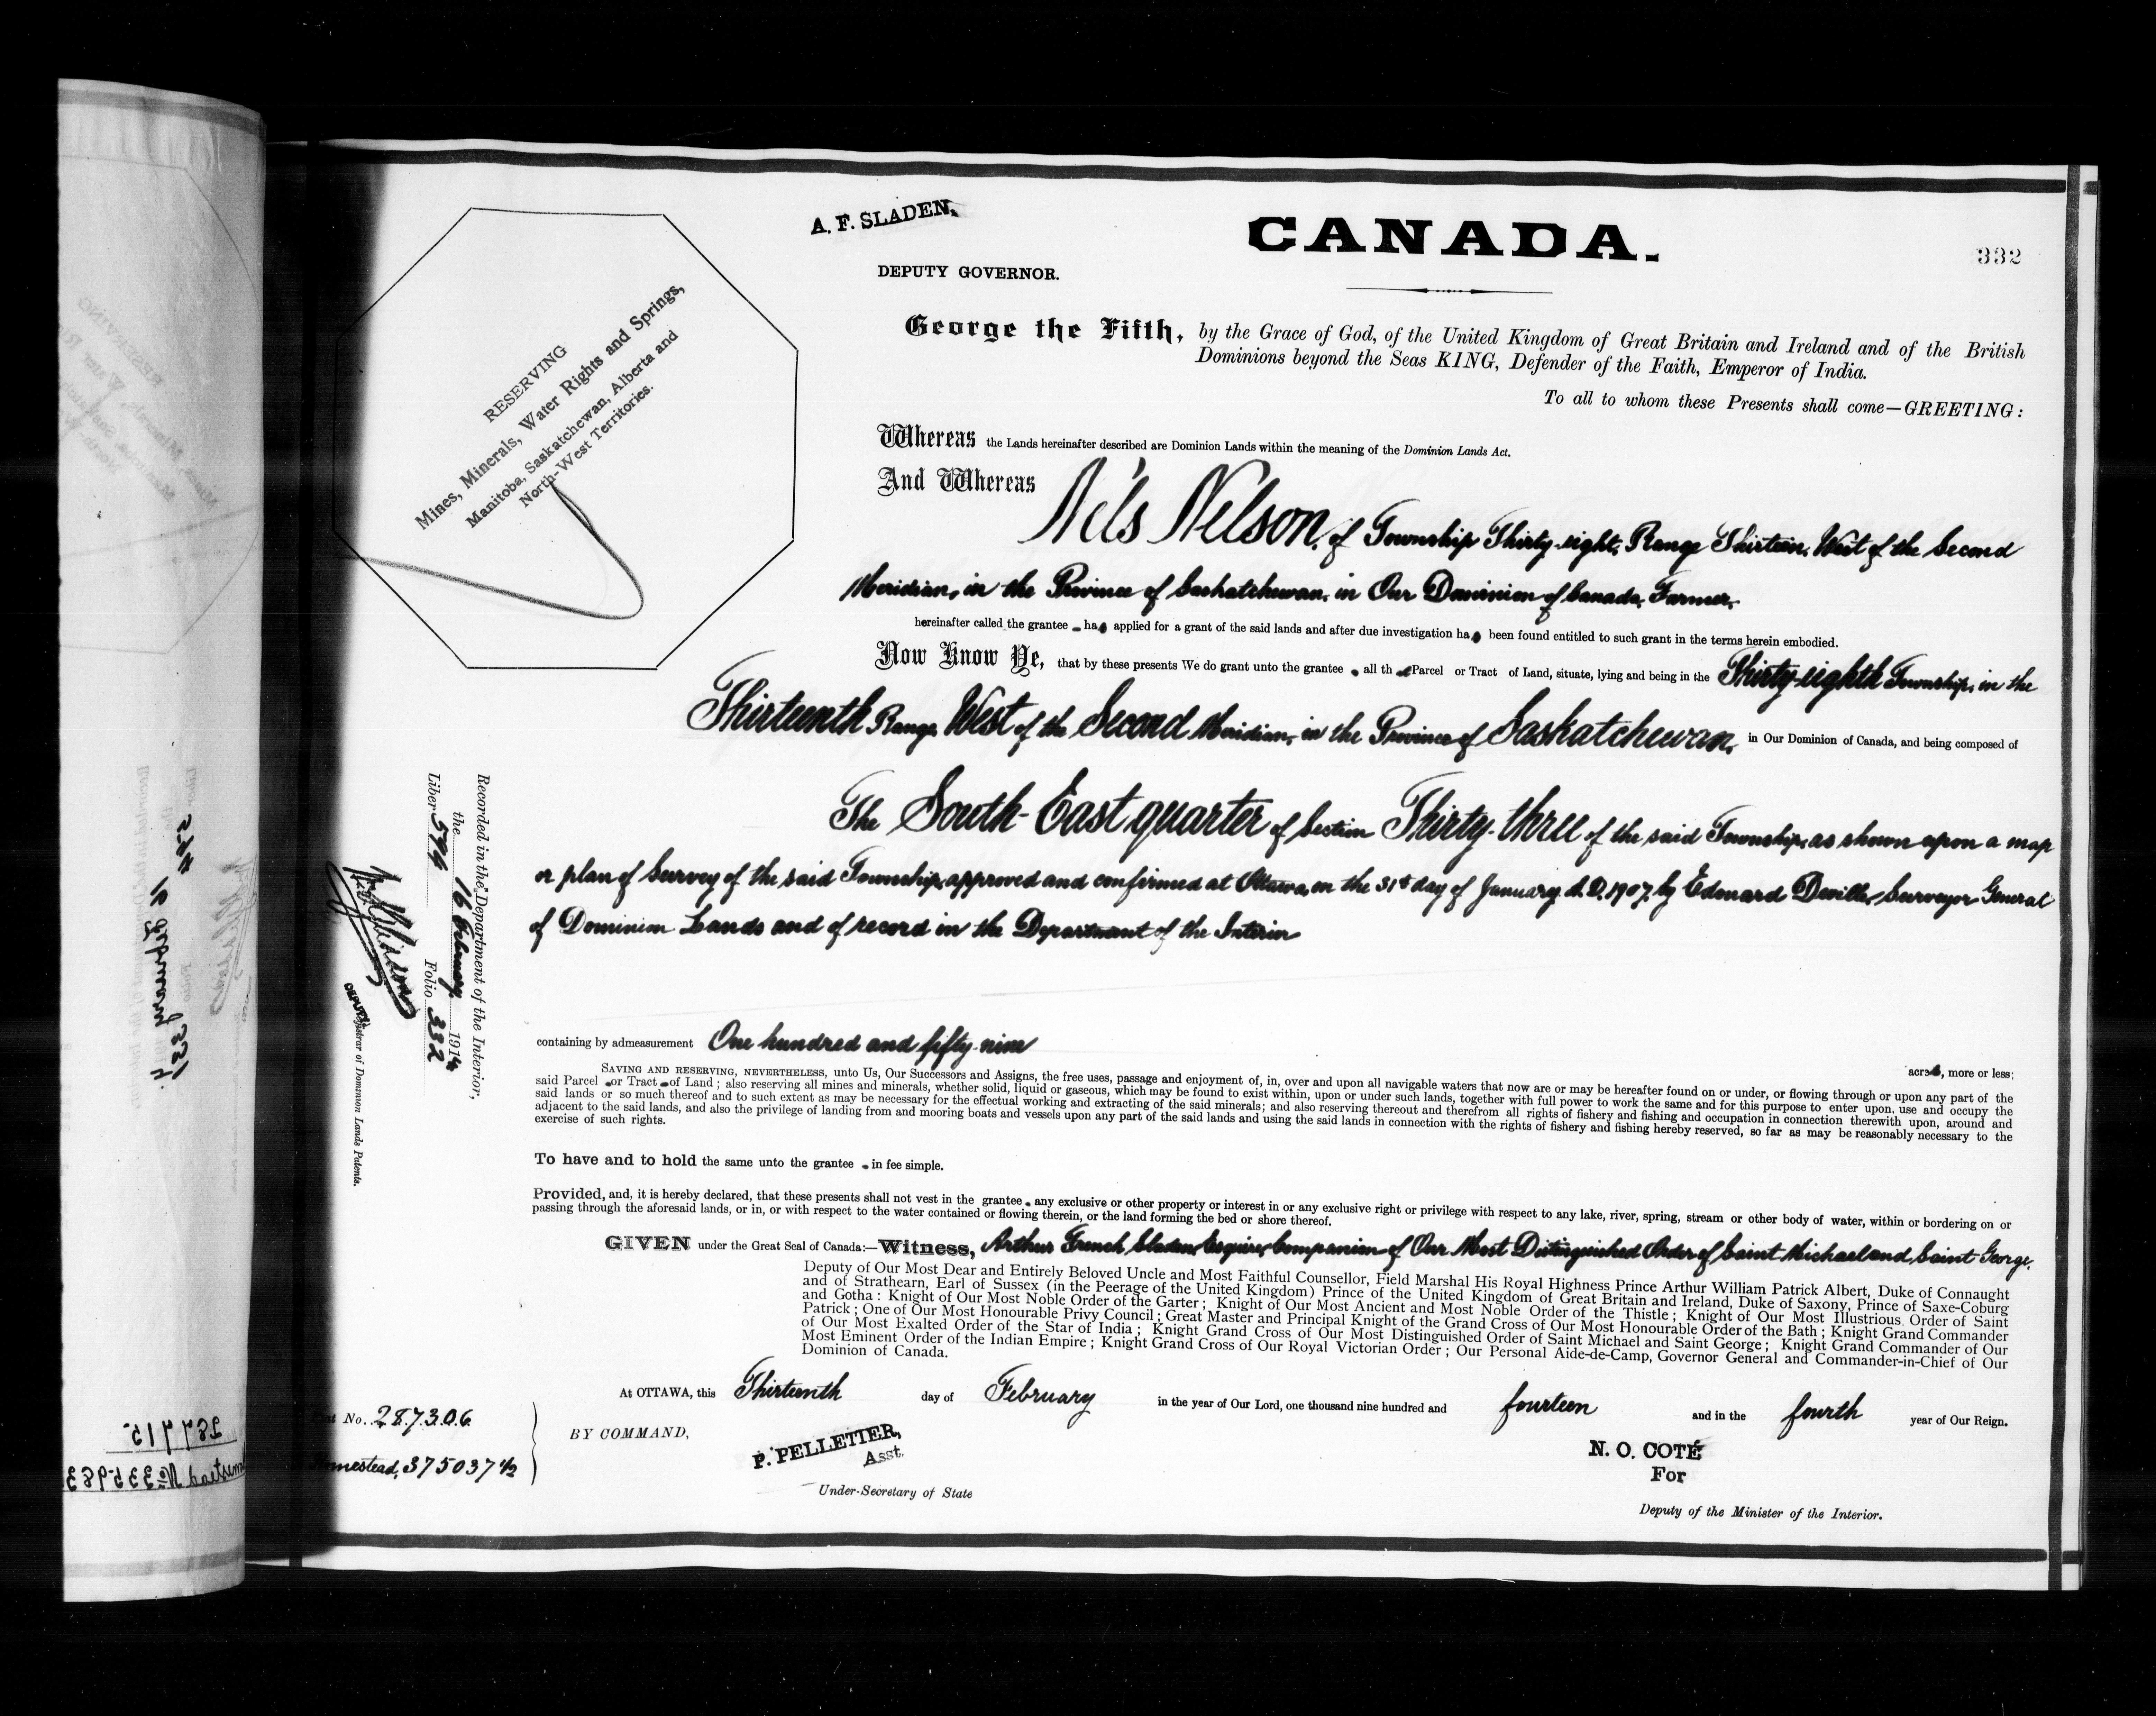 A. F. SLADEN,
DEPUTY GOVERNOR.
CANADA.
332
RESERVING
Mines, Minerals, Water Rights and Springs,
Manitoba, Saskatchewan, Alberta and
North-West Territories.
George the Fifth, by the Grace of God, of the United Kingdom of Great Britain and Ireland and of the British
Dominions beyond the Seas KING, Defender of the Faith, Emperor of India.
To all to whom these Presents shall come—GREETING:
Whereas the Lands hereinafter described are Dominion Lands within the meaning of the Dominion Lands Act.
And Whereas
Nels Nelson, of Township Thirty-eight, Range Thirteen, West of the Second
Meridian, in the Province of Saskatchewan, in Our Dominion of Canada, Farmer,
hereinafter called the grantee has applied for a grant of the said lands and after due investigation has been found entitled to such grant in the terms herein embodied.
Now Know Ye, that by these presents We do grant unto the grantee all that Parcel or Tract of Land, situate, lying and being in the Thirty-eighth Township, in the
Thirteenth Range, West of the Second Meridian, in the Province of Saskatchewan, in Our Dominion of Canada, and being composed of
The South-East quarter of Section Thirty-three of the said Township, as shown upon a map
or plan of Survey of the said Township, approved and confirmed at Ottawa, on the 31st day of January, A.D. 1907, by Edouard Deville, Surveyor General
of Dominion Lands and of record in the Department of the Interior
containing by admeasurement One hundred and fifty-nine
acres, more or less;
SAVING AND RESERVING, NEVERTHELESS, unto Us, Our Successors and Assigns, the free uses, passage and enjoyment of, in, over and upon all navigable waters that now are or may be hereafter found on or under, or flowing through or upon any part of the
said Parcel or Tract of Land; also reserving all mines and minerals, whether solid, liquid or gaseous, which may be found to exist within, upon or under such lands, together with full power to work the same and for this purpose to enter upon, use and occupy the
said lands or so much thereof and to such extent as may be necessary for the effectual working and extracting of the said minerals; and also reserving thereout and therefrom all rights of fishery and fishing and occupation in connection therewith upon, around and
adjacent to the said lands, and also the privilege of landing from and mooring boats and vessels upon any part of the said lands and using the said lands in connection with the rights of fishery and fishing hereby reserved, so far as may be reasonably necessary to the
exercise of such rights.
To have and to hold the same unto the grantee in fee simple.
Provided, and, it is hereby declared, that these presents shall not vest in the grantee any exclusive or other property or interest in or any exclusive right or privilege with respect to any lake, river, spring, stream or other body of water, within or bordering on or
passing through the aforesaid lands, or in, or with respect to the water contained or flowing therein, or the land forming the bed or shore thereof.
GIVEN under the Great Seal of Canada:—Witness, Arthur French Sladen, Esquire, Companion of Our Most Distinguished Order of Saint Michael and Saint George.
Deputy of Our Most Dear and Entirely Beloved Uncle and Most Faithful Counsellor, Field Marshal His Royal Highness Prince Arthur William Patrick Albert, Duke of Connaught
and of Strathearn, Earl of Sussex (in the Peerage of the United Kingdom) Prince of the United Kingdom of Great Britain and Ireland, Duke of Saxony, Prince of Saxe-Coburg
and Gotha: Knight of Our Most Noble Order of the Garter; Knight of Our Most Ancient and Most Noble Order of the Thistle; Knight of Our Most Illustrious Order of Saint
Patrick; One of Our Most Honourable Privy Council; Great Master and Principal Knight of the Grand Cross of Our Most Honourable Order of the Bath; Knight Grand Commander
of Our Most Exalted Order of the Star of India; Knight Grand Cross of Our Most Distinguished Order of Saint Michael and Saint George; Knight Grand Commander of Our
Most Eminent Order of the Indian Empire; Knight Grand Cross of Our Royal Victorian Order; Our Personal Aide-de-Camp, Governor General and Commander-in-Chief of Our
Dominion of Canada.
At OTTAWA, this Thirteenth day of February in the year of Our Lord, one thousand nine hundred and fourteen and in the fourth year of Our Reign.
BY COMMAND,
P. PELLETIER,
Asst.
Under-Secretary of State
N. O. COTÉ
For
Deputy of the Minister of the Interior.
No. 287306
Homestead, 375037 1/2
Recorded in the Department of the Interior,
the 16 February 1914
Liber 594 Folio 332
DEPUTY Registrar of Dominion Lands Patents.